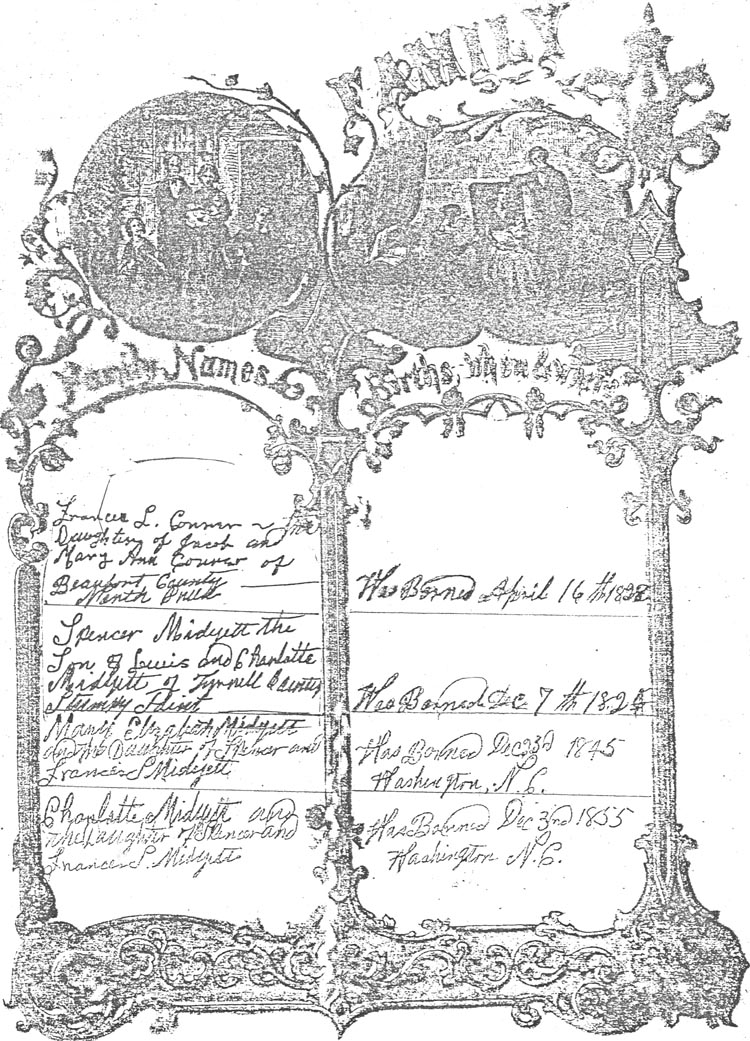 FAMILY
Family Names.
Births, when & where
Frances L. Conner ~ the
Daughter of Jacob and
Mary Ann Conner of
Beaufort County
Was Borned April 16 th 1828
Spencer Midyett the
Son of Lewis and Charlotte
Midyett, of Tyrrell County
Was Borned Dec 7 th
Mary Elizabeth Midyett
Daughter of Spencer and
Frances L. Midyett
Was Borned Dec 23d 1845
Washington, N.C.
Charlotte Midyett and
the Daughter of Spencer and
Frances L. Midyett
Was Borned Dec 3nd 1855
Washington N.C.